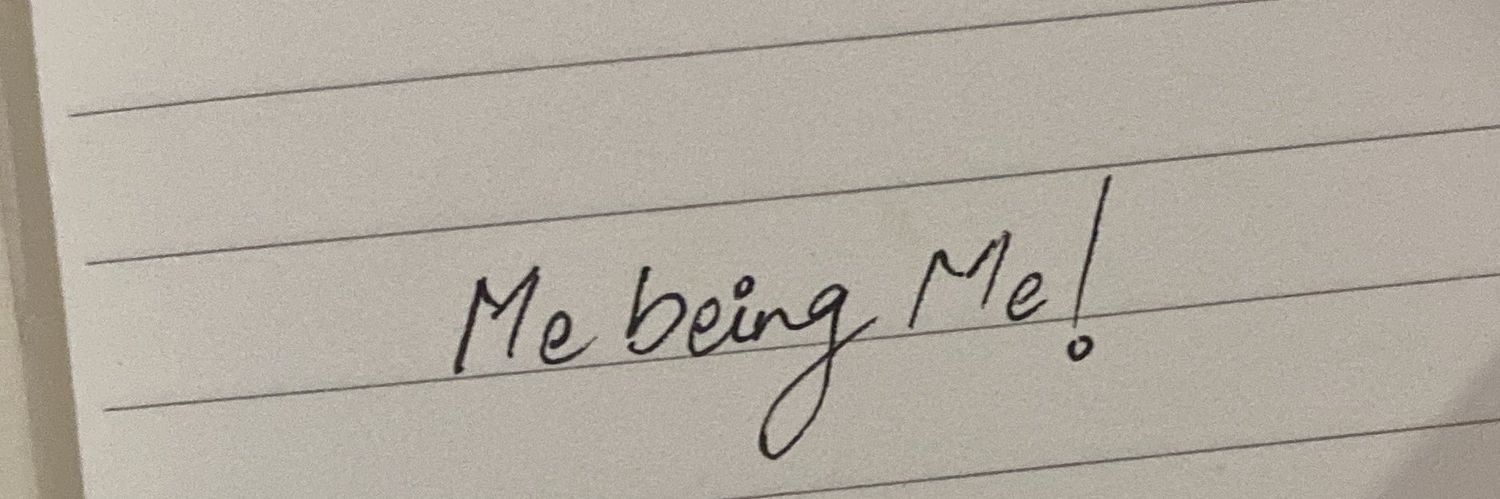 Me being Me!